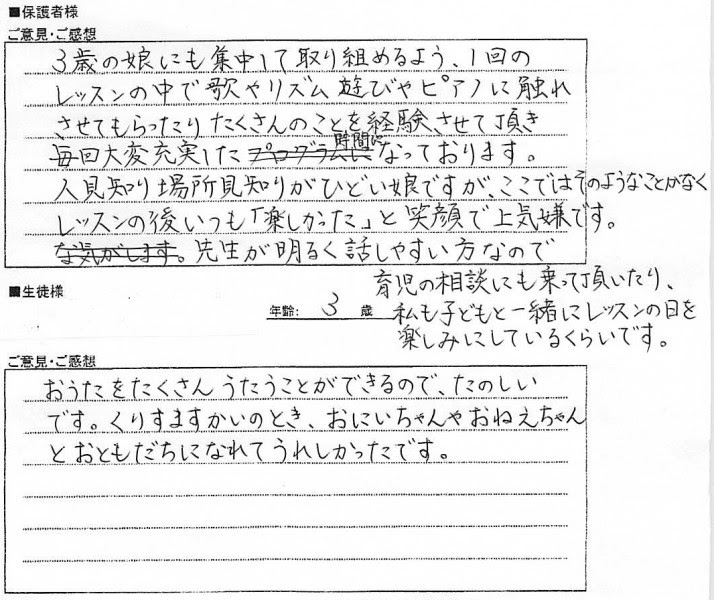 ■保護者様
ご意見・ご感想
3歳の娘にも集中して取り組めるよう、1回の
レッスンの中で歌やリズム遊びやピアノに触れ
させてもらったりたくさんのことを経験させて頂き
時間に
毎回大変充実したプログラムになっております。
人見知り場所見知りがひどい娘ですが、ここではそのようなことがなく
レッスンの後いつも「楽しかった」と笑顔で上気嫌です。
な気がします。先生が明るく話しやすい方なので
育児の相談にも乗って頂いたり、
■生徒様
年齢: 3 歳
私も子どもと一緒にレッスンの日を
楽しみにしているくらいです。
ご意見・ご感想
おうたをたくさんうたうことができるので、たのしい
です。くりすますかいのとき、おにいちゃんやおねえちゃん
とおともだちになれてうれしかったです。